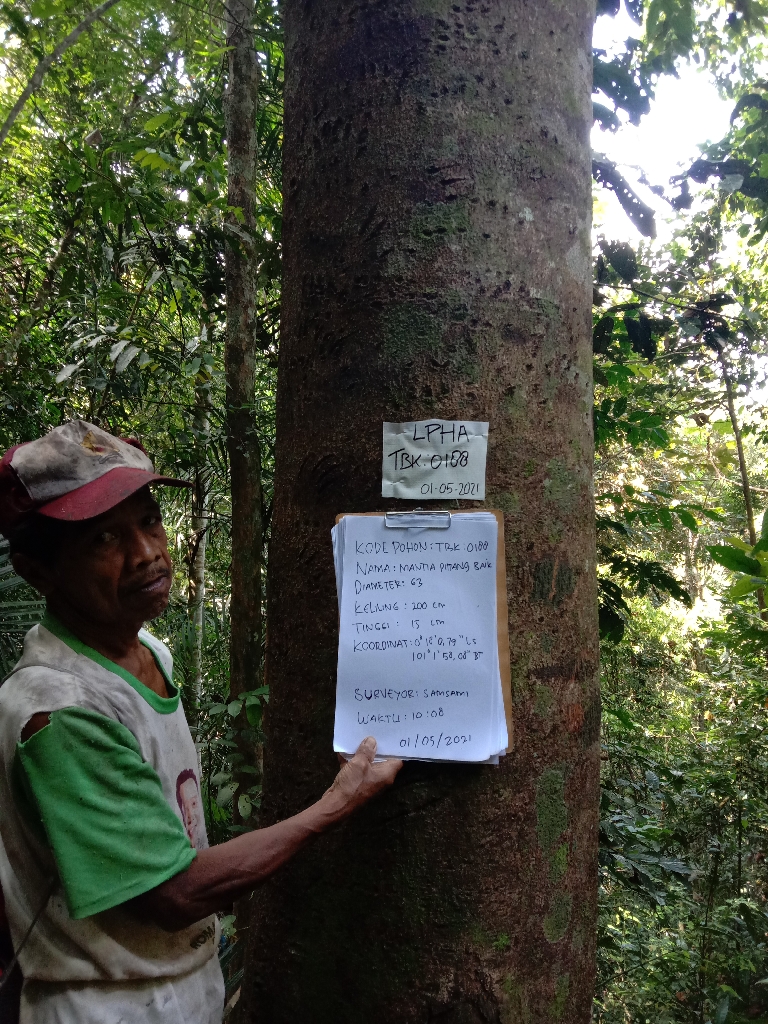 LPHA
TBK.0188
01-05-2021
KODE POHON: TBK.0188
NAMA: MANTIA PITANG BAIK
DIAMETER: 63
KELILING: 200 cm
TINGGI: 15 cm
KOORDINAT: 0° 18' 0,79" LS
101° 1' 58,08" BT
SURVEYOR: SAMSAMI
WAKTU: 10:08
01/05/2021